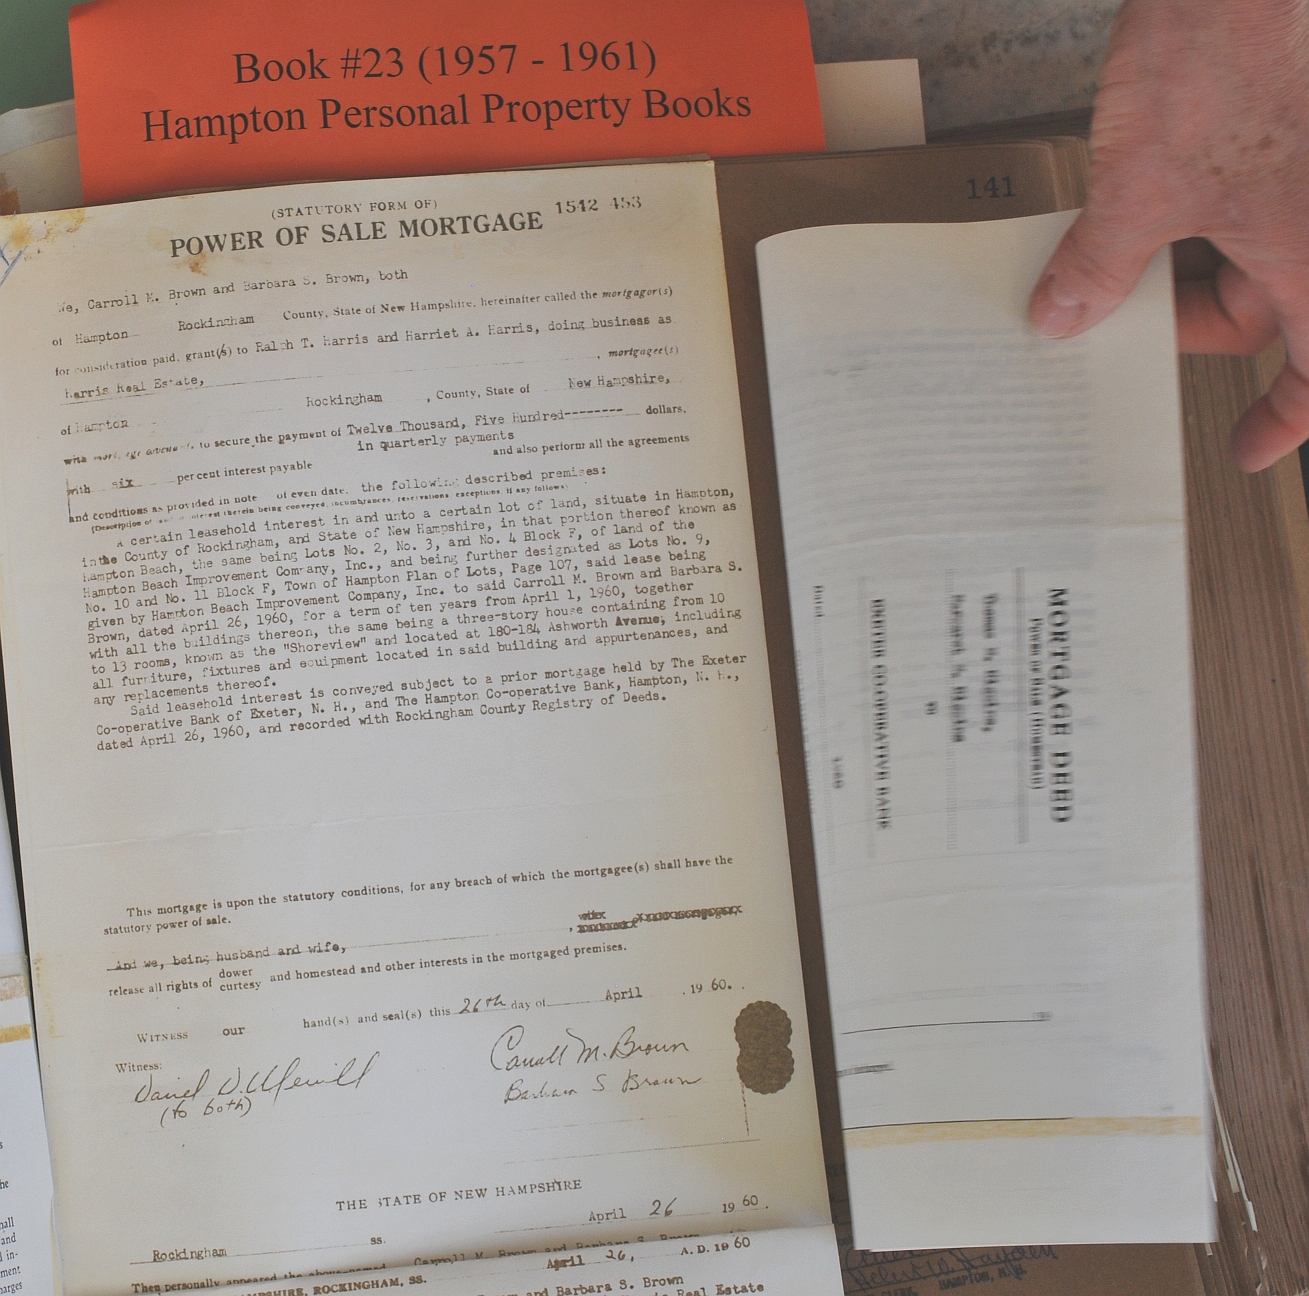 Book #23 (1957 - 1961)
Hampton Personal Property Books
141
(STATUTORY FORM OF)
POWER OF SALE MORTGAGE 1542 453
We, Carroll M. Brown and Barbara S. Brown, both
of Hampton Rockingham County, State of New Hampshire, hereinafter called the mortgagor(s)
for consideration paid, grant(s) to Ralph T. Harris and Harriet A. Harris, doing business as
Harris Real Estate, , mortgagee(s)
of Hampton Rockingham , County, State of New Hampshire,
with mortgage covenants, to secure the payment of Twelve Thousand, Five Hundred-------- dollars,
in quarterly payments
with six percent interest payable and also perform all the agreements
and conditions as provided in note of even date, the following described premises:
(Description of interest therein being conveyed, incumbrances, reservations, exceptions, if any follows)
A certain leasehold interest in and unto a certain lot of land, situate in Hampton,
inthe County of Rockingham, and State of New Hampshire, in that portion thereof known as
Hampton Beach, the same being Lots No. 2, No. 3, and No. 4 Block F, of land of the
Hampton Beach Improvement Company, Inc., and being further designated as Lots No. 9,
No. 10 and No. 11 Block F, Town of Hampton Plan of Lots, Page 107, said lease being
given by Hampton Beach Improvement Company, Inc. to said Carroll M. Brown and Barbara S.
Brown, dated April 26, 1960, for a term of ten years from April 1, 1960, together
with all the buildings thereon, the same being a three-story house containing from 10
to 13 rooms, known as the "Shoreview" and located at 180-184 Ashworth Avenue, including
all furniture, fixtures and equipment located in said building and appurtenances, and
any replacements thereof.
Said leasehold interest is conveyed subject to a prior mortgage held by The Exeter
Co-operative Bank of Exeter, N. H., and The Hampton Co-operative Bank, Hampton, N. H.,
dated April 26, 1960, and recorded with Rockingham County Registry of Deeds.
This mortgage is upon the statutory conditions, for any breach of which the mortgagee(s) shall have the
statutory power of sale.
And we, being husband and wife, ,
release all rights of dower curtesy and homestead and other interests in the mortgaged premises.
WITNESS our hand(s) and seal(s) this 26th day of April 1960.
Witness:
Daniel D. Merrill Carroll M. Brown
(to both) Barbara S Brown
THE STATE OF NEW HAMPSHIRE
April 26 1960.
Rockingham ss.
Then personally appeared the above-named Carroll M. Brown and Barbara S. Brown
HAMPSHIRE, ROCKINGHAM, SS. April 26, A. D. 1960
and Barbara S. Brown
Real Estate
MORTGAGE DEED
EXETER COOPERATIVE BANK
Dated
HAMPTON, N.H.